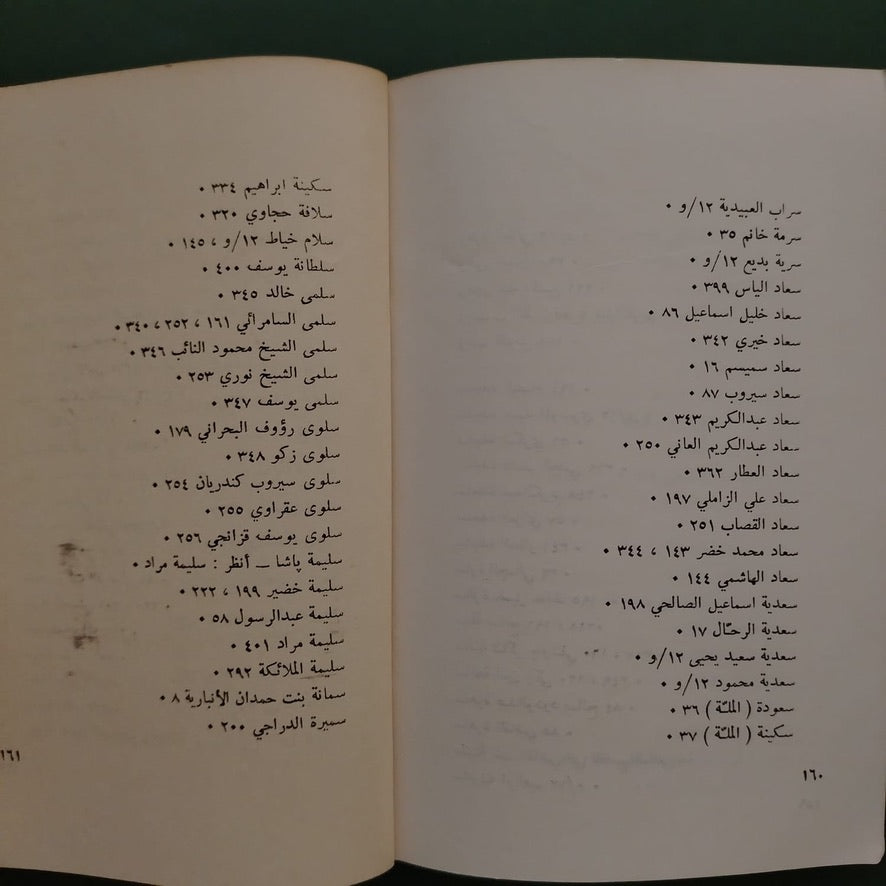 سراب العبيدية ١٢/و ٠
سرمة خانم ٣٥ ٠
سرية بديع ١٢/و ٠
سعاد الياس ٣٩٩ ٠
سعاد خليل اسماعيل ٨٦ ٠
سعاد خيري ٣٤٢ ٠
سعاد سميسم ١٦ ٠
سعاد سيروب ٨٧ ٠
سعاد عبدالكريم ٣٤٣ ٠
سعاد عبدالكريم العاني ٢٥٠ ٠
سعاد العطار ٣٦٢ ٠
سعاد علي الزاملي ١٩٧ ٠
سعاد القصاب ٢٥١ ٠
سعاد محمد خضر ١٤٣ ، ٣٤٤ ٠
سعاد الهاشمي ١٤٤ ٠
سعدية اسماعيل الصالحي ١٩٨ ٠
سعدية الرحّال ١٧ ٠
سعدية سعيد يحيى ١٢/و ٠
سعدية محمود ١٢/و ٠
سعودة ( الملـّة ) ٣٦ ٠
سكينة ( الملـّة ) ٣٧ ٠
١٦٠
سكينة ابراهيم ٣٣٤ ٠
سلافة حجاوي ٣٢٠ ٠
سلام خياط ١٢/و ، ١٤٥ ٠
سلطانة يوسف ٤٠٠ ٠
سلمى خالد ٣٤٥ ٠
سلمى السامرائي ١٦١ ، ٢٥٢ ، ٣٤٠ ٠
سلمى الشيخ محمود النائب ٣٤٦ ٠
سلمى الشيخ نوري ٢٥٣ ٠
سلمى يوسف ٣٤٧ ٠
سلوى رؤوف البحراني ١٧٩ ٠
سلوى زكو ٣٤٨ ٠
سلوى سيروب كندريان ٢٥٤ ٠
سلوى عقراوي ٢٥٥ ٠
سلوى يوسف قزانجي ٢٥٦ ٠
سليمة پاشا ــ أنظر : سليمة مراد ٠
سليمة خضير ١٩٩ ، ٢٢٢ ٠
سليمة عبدالرسول ٥٨ ٠
سليمة مراد ٤٠١ ٠
سليمة الملائكة ٢٩٢ ٠
سمانة بنت حمدان الأنبارية ٨ ٠
سميرة الدراجي ٢٠٠ ٠
١٦١